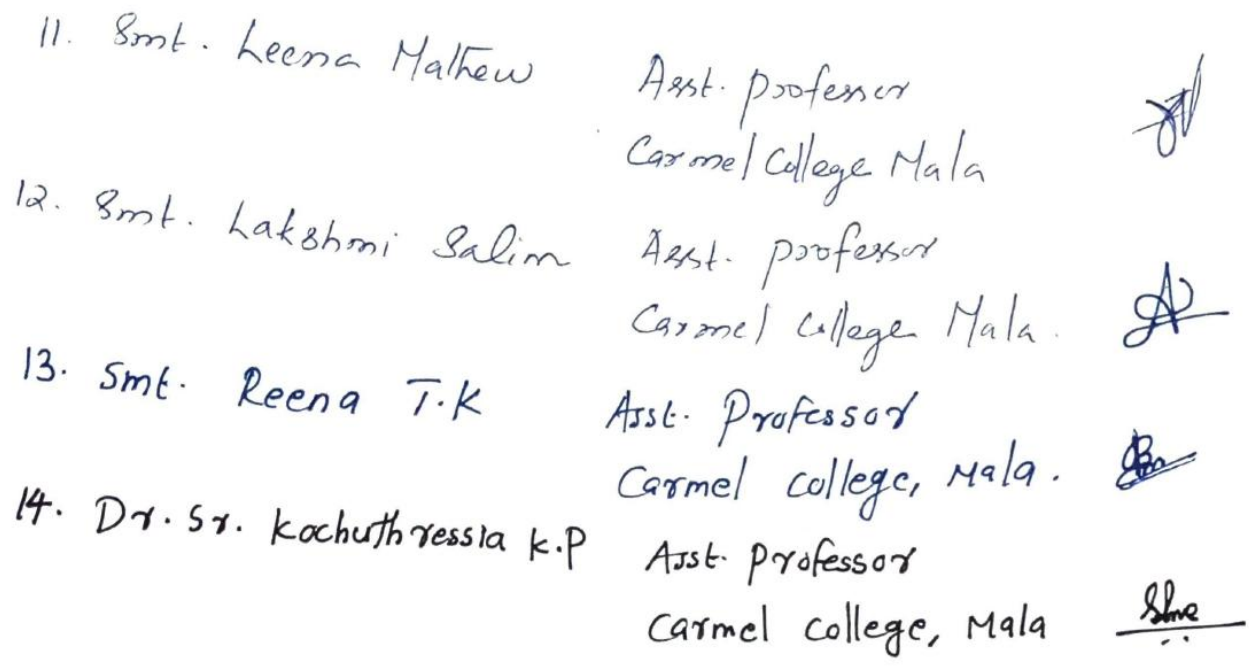 11. Smt. Leena Mathew Asst. professor
Carmel College Mala
12. Smt. Lakshmi Salim Asst. professor
Carmel College Mala.
13. Smt. Reena T.K Asst. Professor
Carmel college, Mala.
14. Dr. Sr. Kochuthressia K.P Asst. Professor
Carmel college, Mala